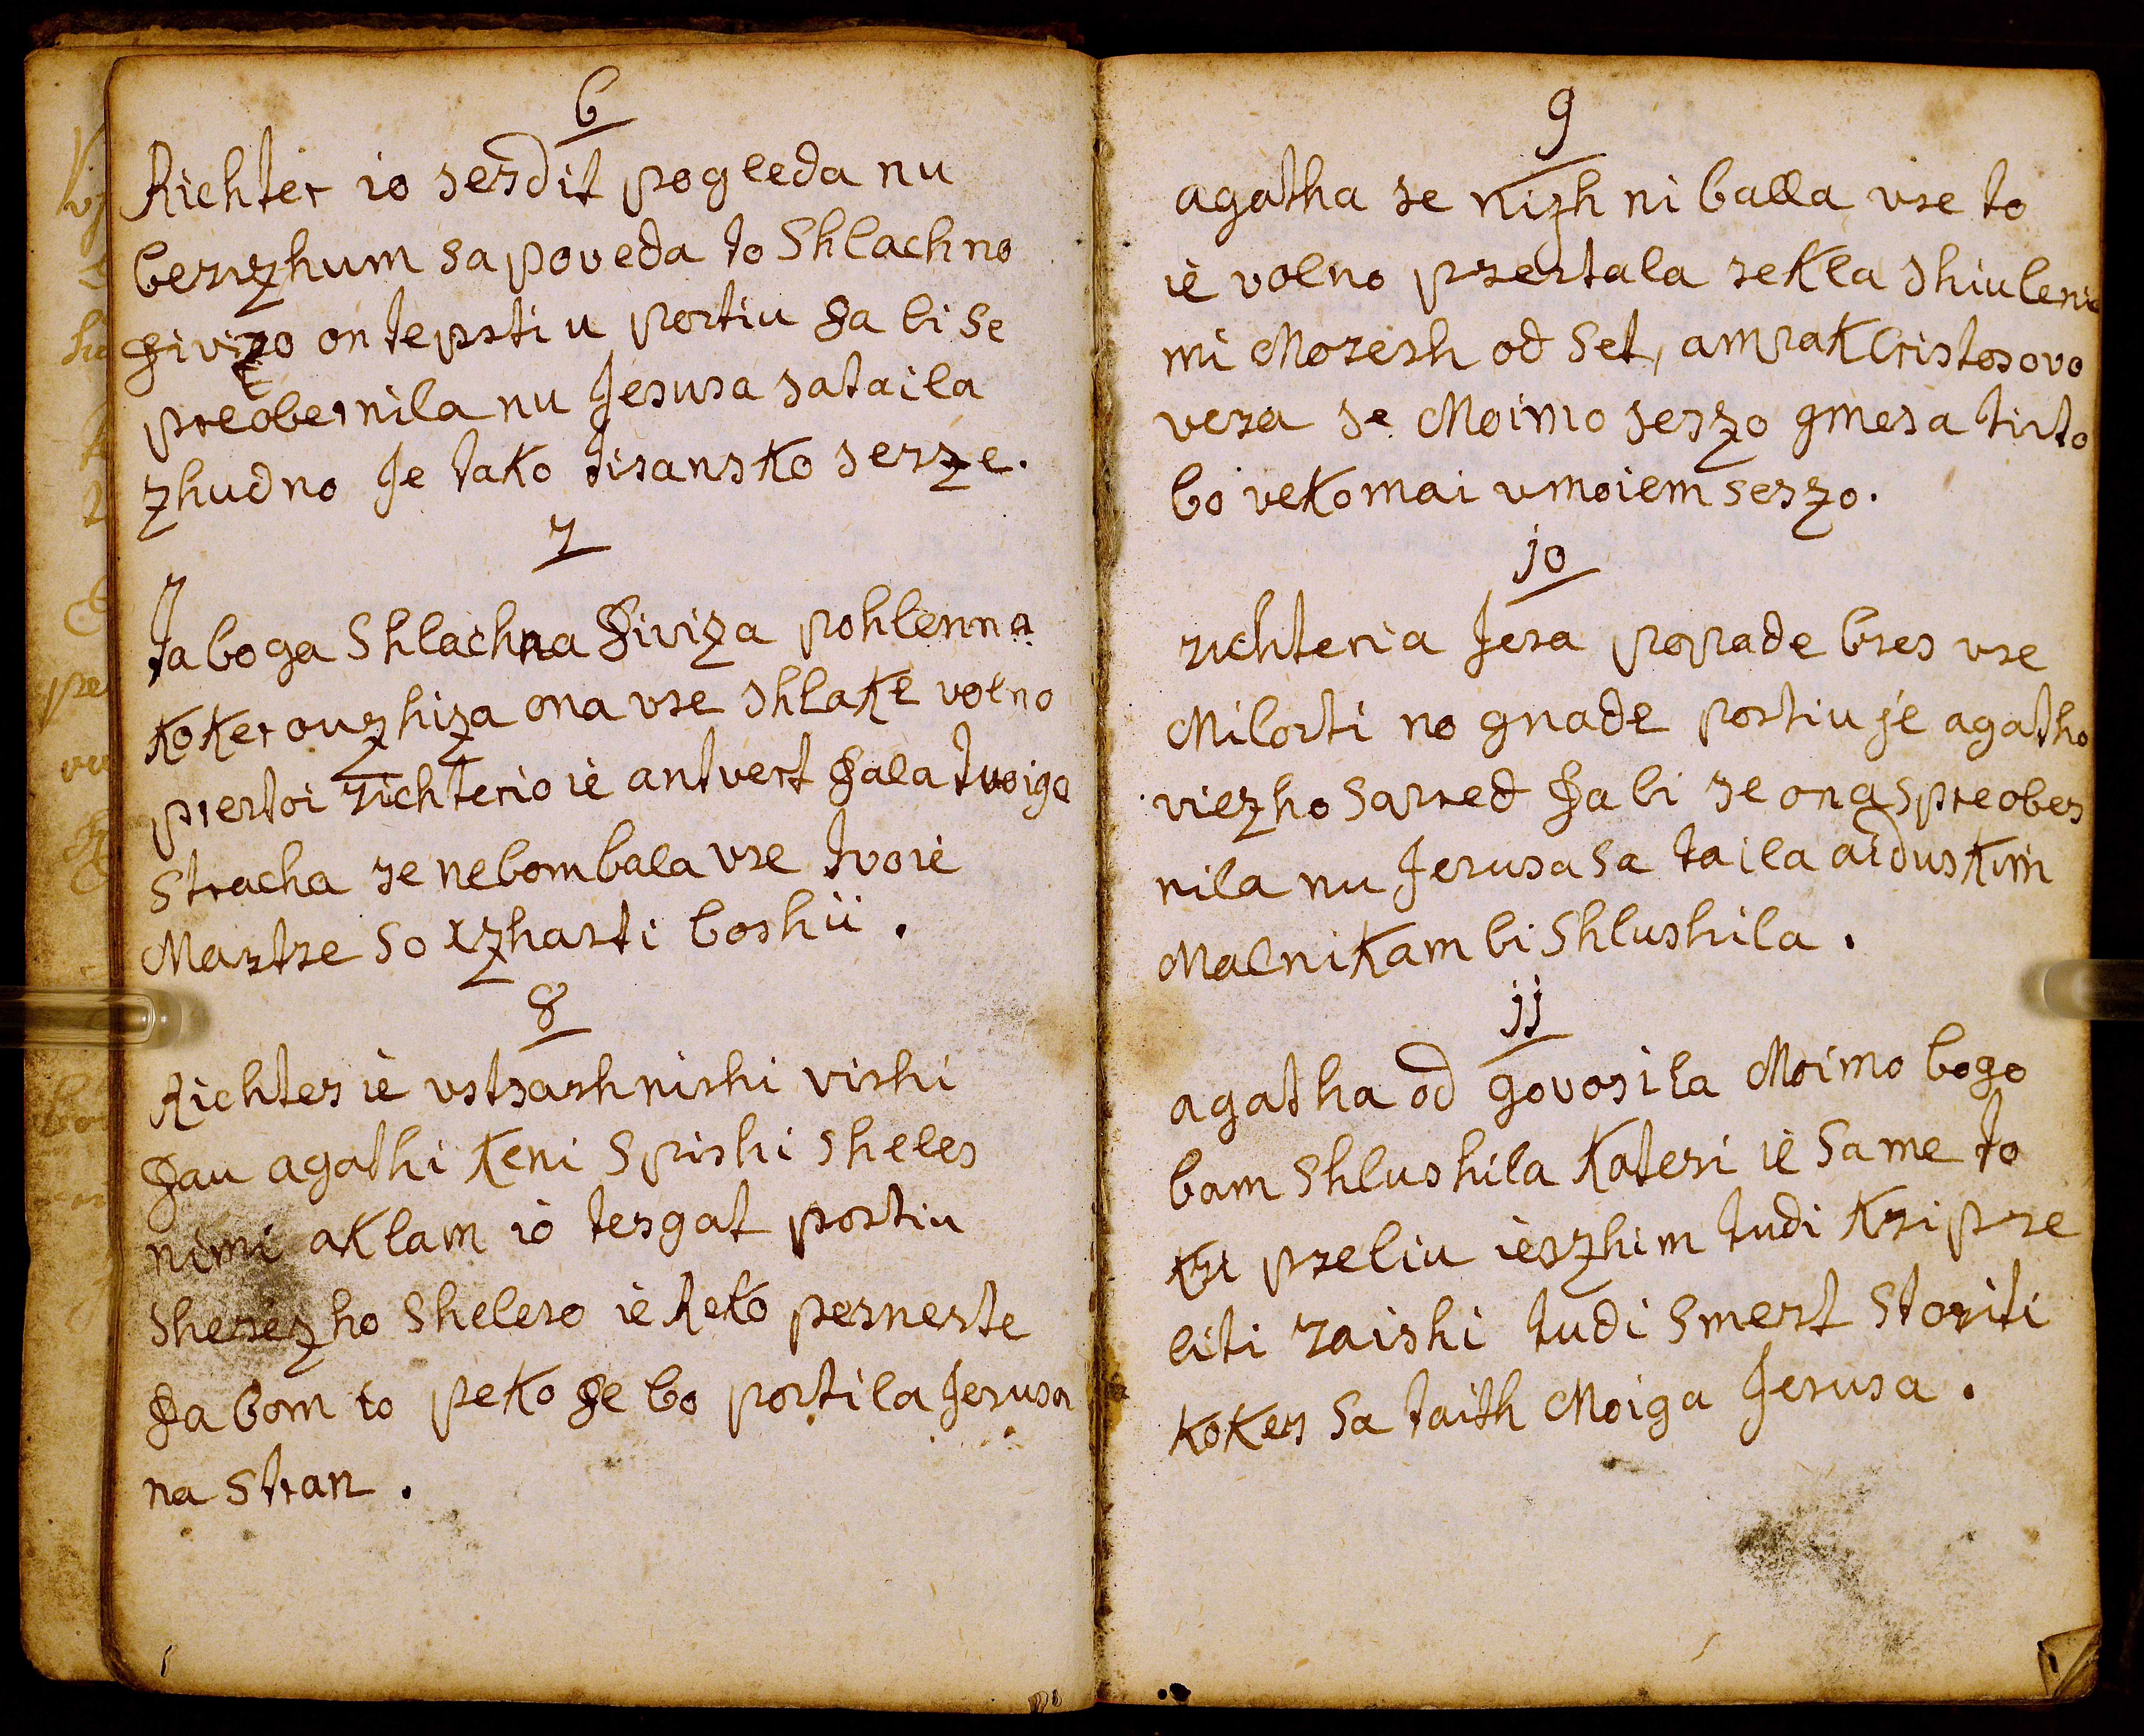 6
Richter io serdit pogleda nu
berizhum sa poveda to Shlachno
divizo on tepsti u postiu da bi se
preobernila nu Jesusa sataila
zhudno Je tako tiransko serze.
7
Ta boga Shlachna diviza pohlenna
koker ouzhiza ona vse shlake volno
prestoi richterio ie antvert dala tvoiga
stracha se nebom bala vse tvoie
Martre so xzhasti boshii.
8
Richter ie vstrashnishi vishi
dau agathi keni spishi sheles
nimi aklam io tergat postiu
sherezho shelero ie Reko perneste
da bom to peko de bo postila Jesusa
na stran.
9
agatha se nizh ni balla vse to
ie volno prestala rekla shiulenie
mi Moresh od Set, ampak Cristosovo
vera se Moimo serzo gmesa tirto
bo vekomai vmoiem serzo.
jo
richteria Jesa popade bres vse
Milosti no gnade postiu je agatho
viezho sarred da bi se ona spreober
nila nu Jesusa sa taila aiduskim
Malnikam bi Shlushila.
jj
agatha od govorila Moimo bogo
bom Shlushila kateri ie sa me to
kri preliu ieszhim tudi kri pre
liti raishi tudi Smert storiti
koker sa taith Moiga Jesusa.